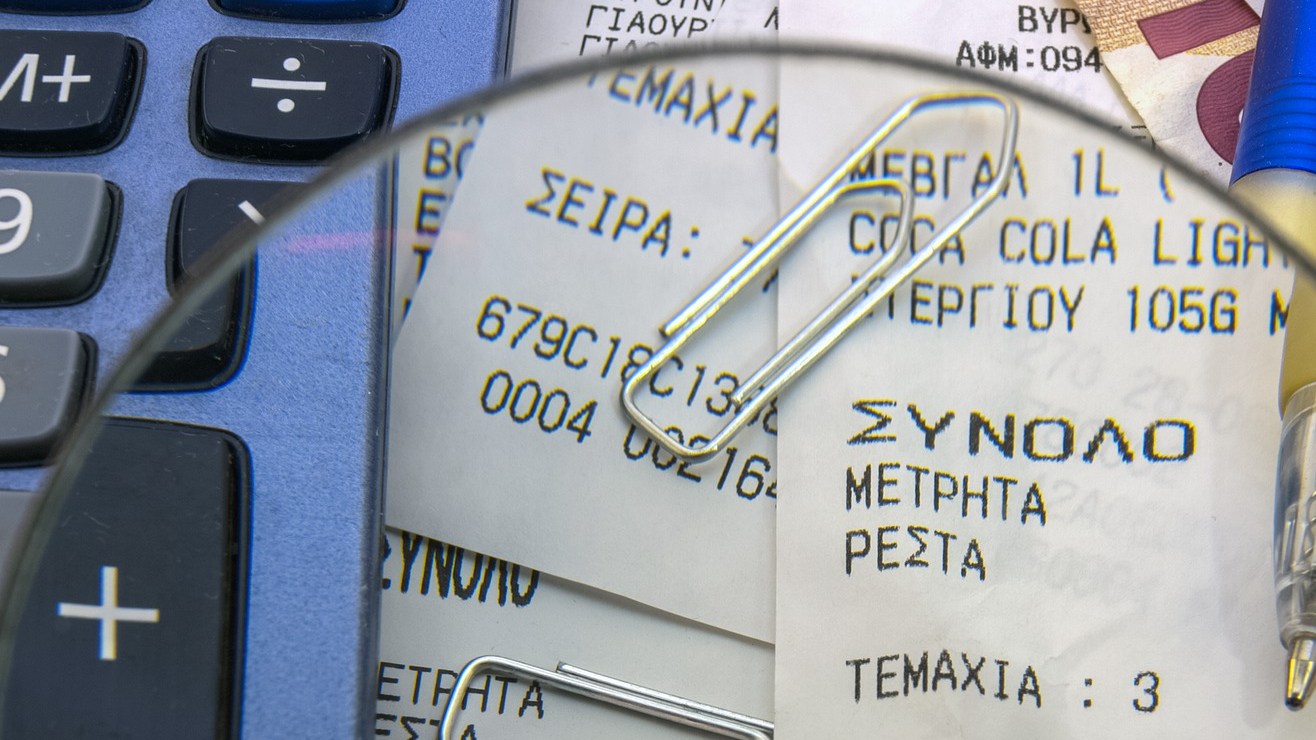 M+
÷
9
+
ΤΕΜΑΧΙΑ
ΣΕΙΡΑ:
0004
ΣΥΝΟΛΟ
ΜΕΤΡΗΤΑ
ΒΥΡ
ΑΦΜ:094
ΜΕΒΓΑΛ 1L (
COCA COLA LIGHT
ΣΤΕΡΓΙΟΥ 105G Μ
ΣΥΝΟΛΟ
ΜΕΤΡΗΤΑ
ΡΕΣΤΑ
ΤΕΜΑΧΙΑ : 3